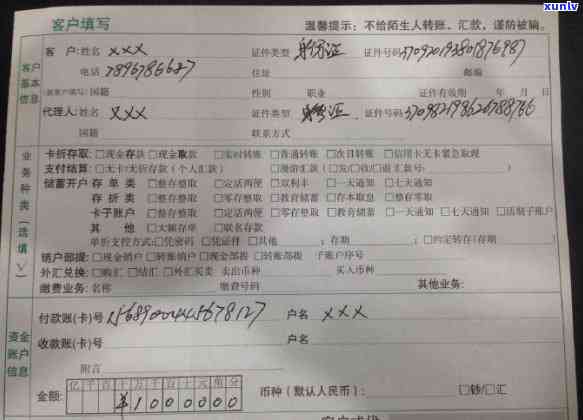 xunlv
客户填写
温馨提示：不给陌生人转账、汇款，谨防被骗。
客户基本信息
客 户：姓名 xxx 证件类型 身份证 证件号码
电话 7896786627 住址 邮编
(新客户填写) 国籍 性别 职业 证件有效期 年 月 日
代理人：姓名 xxx 证件类型 身份证 证件号码
国籍 联系方式
业务种类(选填√)
卡折存取：□现金存款 □现金取款 □实时转账 □普通转账 □次日转账 □信用卡无卡紧急取现
支付结算：□无卡/无折存款（个人汇款） □漫游汇款（□发/□收/□退汇款号：
储蓄开户 存 单 类 □整存整取 □定活两便 □双利丰 □一天通知 □七天通知
存 折 类 □整存整取 □零存整取 □教育储蓄 □存本取息 □整存零取
卡子账户 □整存整取 □定活两便 □零存整取 □教育储蓄 □一天通知 □七天通知 □活期子账户
其 他 □大额存单 □联名存款
单折支控方式：□凭密码 □凭证件 □其他 ；存期 ；□约定转存(存期
销户部提：□现金销户 □转账销户 □现金部提 □转账部提 子账户序号
外汇兑换：□购汇 □结汇 □外汇买卖 卖出币种 买入币种
缴费业务：名称 缴费号码 其他业务：
资金账户信息
付款账(卡)号 户名 xxx
收款账(卡)号 户名
附言
金额： 亿 千 百 十 万 千 百 十 元 角 分 币种（默认人民币） □钞/□汇
¥1000000